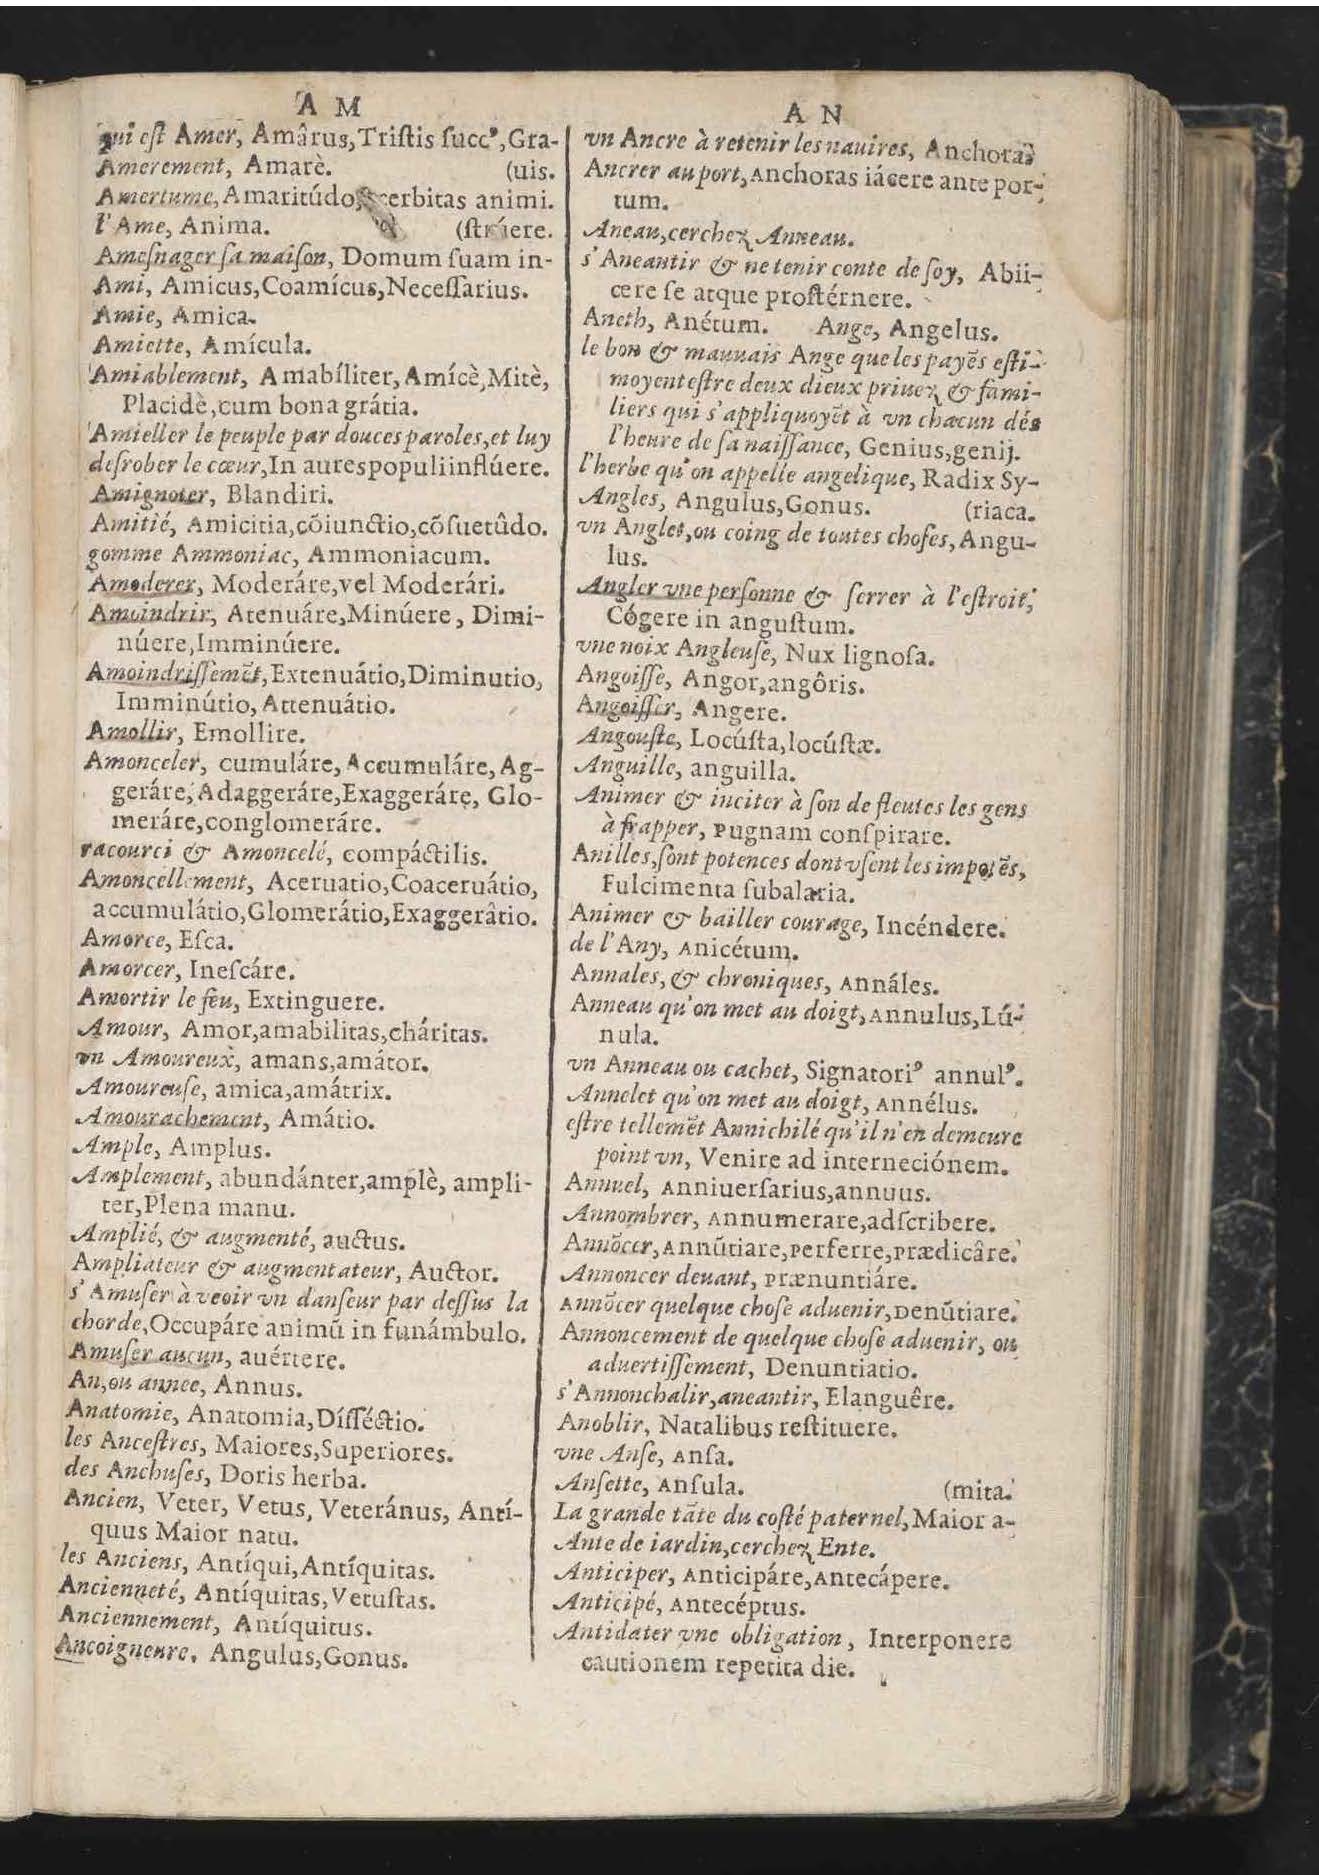 A M
qui eſt Amer, Amârus, Triſtis ſucc⁹, Gra-
Amerement, Amarè. (uis.
Amertume, Amaritúdo, acerbitas animi.
l'Ame, Anima. (ſtrúere.
Ameſnager ſa maiſon, Domum ſuam in-
Ami, Amicus, Coamícus, Neceſſarius.
Amie, Amica.
Amiette, Amícula.
Amiablement, Amabíliter, Amícè, Mitè,
Placidè, cum bona grátia.
Amieller le peuple par douces paroles, et luy
deſrober le cœur, In aures populi inflúere.
Amignoter, Blandiri.
Amitié, Amicitia, cõiunctio, cõſuetûdo.
gomme Ammoniac, Ammoniacum.
Amoderer, Moderáre, vel Moderári.
Amoindrir, Atenuáre, Minúere, Dimi-
núere, Imminúere.
Amoindriſſemẽt, Extenuátio, Diminutio,
Imminútio, Attenuátio.
Amollir, Emollire.
Amonceler, cumuláre, Accumuláre, Ag-
geráre, Adaggeráre, Exaggeráre, Glo-
meráre, conglomeráre.
racourci & Amoncelé, compáctilis.
Amoncellement, Aceruatio, Coaceruátio,
accumulátio, Glomerátio, Exaggerâtio.
Amorce, Eſca.
Amorcer, Ineſcáre.
Amortir le feu, Extinguere.
Amour, Amor, amabilitas, cháritas.
vn Amoureux, amans, amátor.
Amoureuſe, amica, amátrix.
Amourachement, Amátio.
Ample, Amplus.
Amplement, abundánter, amplè, ampli-
ter, Plena manu.
Amplié, & augmenté, auctus.
Ampliateur & augmentateur, Auctor.
s'Amuſer à veoir vn danſeur par deſſus la
chorde, Occupáre animũ in funámbulo.
Amuſer aucun, auértere.
An, ou annee, Annus.
Anatomie, Anatomia, Díſſéctio.
les Anceſtres, Maiores, Superiores.
des Anchuſes, Doris herba.
Ancien, Veter, Vetus, Veteránus, Antí-
quus Maior natu.
les Anciens, Antíqui, Antíquitas.
Ancienneté, Antíquitas, Vetuſtas.
Anciennement, Antíquitus.
Ancoigneure, Angulus, Gonus.
A N
vn Ancre à retenir les nauires, Anchora.
Ancrer au port, Anchoras iácere ante por-
tum.
Aneau, cerchez Anneau.
s'Aneantir & ne tenir conte de ſoy, Abii-
cere ſe atque proſtérnere.
Aneth, Anétum. Ange, Angelus.
le bon & mauuais Ange que les payẽs eſti-
moyent eſtre deux dieux priuez & fami-
liers qui s'appliquoyẽt à vn chacun dés
l'heure de ſa naiſſance, Genius, genij.
l'herbe qu'on appelle angelique, Radix Sy-
Angles, Angulus, Gonus. (riaca.
vn Anglet, ou coing de toutes choſes, Angu-
lus.
Angler vne perſonne & ſerrer à l'eſtroit,
Cógere in anguſtum.
vne noix Angleuſe, Nux lignoſa.
Angoiſſe, Angor, angôris.
Angoiſſer, Angere.
Angouſte, Locúſta, locúſtæ.
Anguille, anguilla.
Animer & inciter à ſon de fleutes les gens
à frapper, Pugnam conſpirare.
Anilles, ſont potences dont vſent les impotẽs,
Fulcimenta ſubalaria.
Animer & bailler courage, Incéndere.
de l'Any, Anicétum.
Annales, & chroniques, Annâles.
Anneau qu'on met au doigt, Annulus, Lú-
nula.
vn Anneau ou cachet, Signatori⁹ annul⁹.
Annelet qu'on met au doigt, Annélus.
eſtre tellemẽt Annichilé qu'il n'en demeure
point vn, Venire ad interneciónem.
Annuel, Anniuerſarius, annuus.
Annombrer, Annumerare, adſcribere.
Annõcer, Annũtiare, Perferre, Prædicâre.
Annoncer deuant, Prænuntiáre.
Annõcer quelque choſe aduenir, Denũtiare.
Annoncement de quelque choſe aduenir, ou
aduertiſſement, Denuntiatio.
s'Annonchalir, aneantir, Elanguêre.
Anoblir, Natalibus reſtituere.
vne Anſe, Anſa.
Anſette, Anſula. (mita.
La grande tãte du coſté paternel, Maior a-
Ante de iardin, cerchez Ente.
Anticiper, Anticipáre, Antecápere.
Anticipé, Antecéptus.
Antidater vne obligation, Interponere
cautionem repetita die.